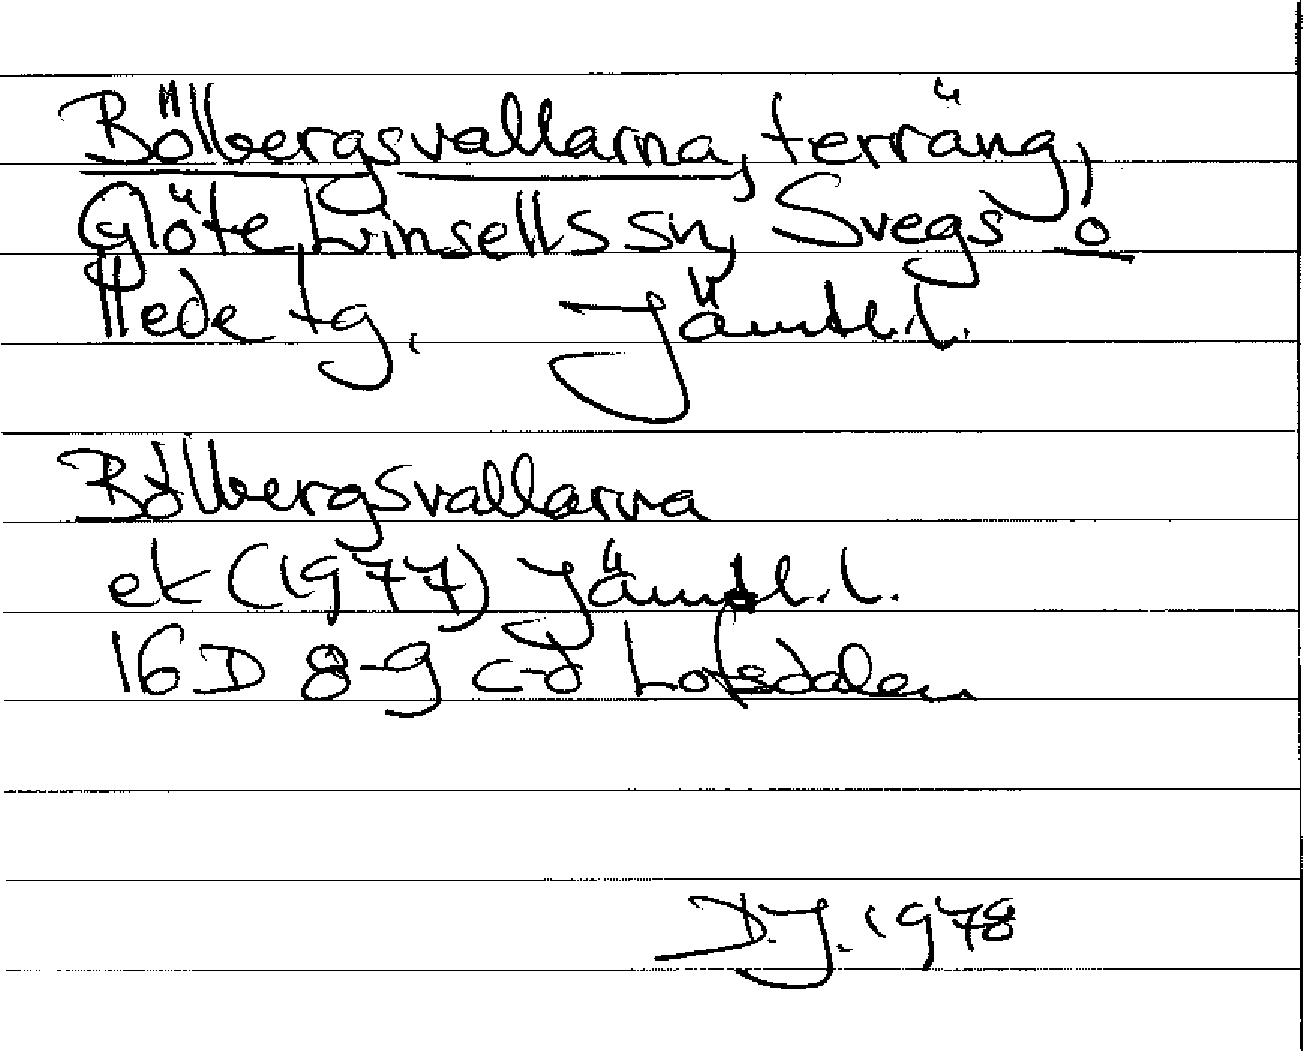 Bölbergsvallarna, terräng,
Glöte, Linsells sn, Svegs o
Hede tg. Jämtl.l.
Bölbergsvallarna
ek (1977) Jämtl.l.
16D 8-9 c-d Lofsdalen
D.J. 1978